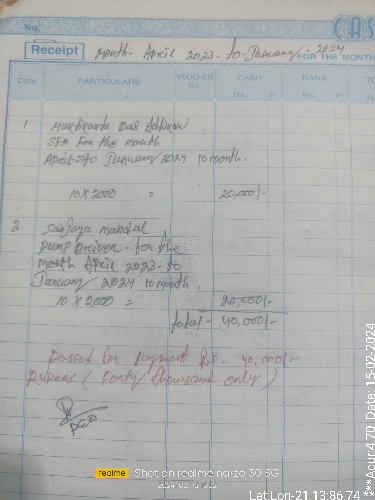 No.
CAS
Receipt Month - April 2023 - to - January - 2024
FOR THE MONTH
Date PARTICULARS VOUCHER No. CASH BANK TO
Rs. P. Rs. P. Rs.
1
SEM for the month
April to January 2024 10 month.
10 x 2000 = 20,000/-
2 Sanjaya mandal
pump driver - for the
month April 2023 - to
January 2024 10 month.
10 x 2000 = 20,000/-
total - 40,000/-
Passed for payment Rs. 40,000/-
Rupees (Forty thousand only)
PEO
realme Shot on realme narzo 30 5G
Lat:Lon-21.13:86.74 ***Acur:4.70 Date:15-02-2024